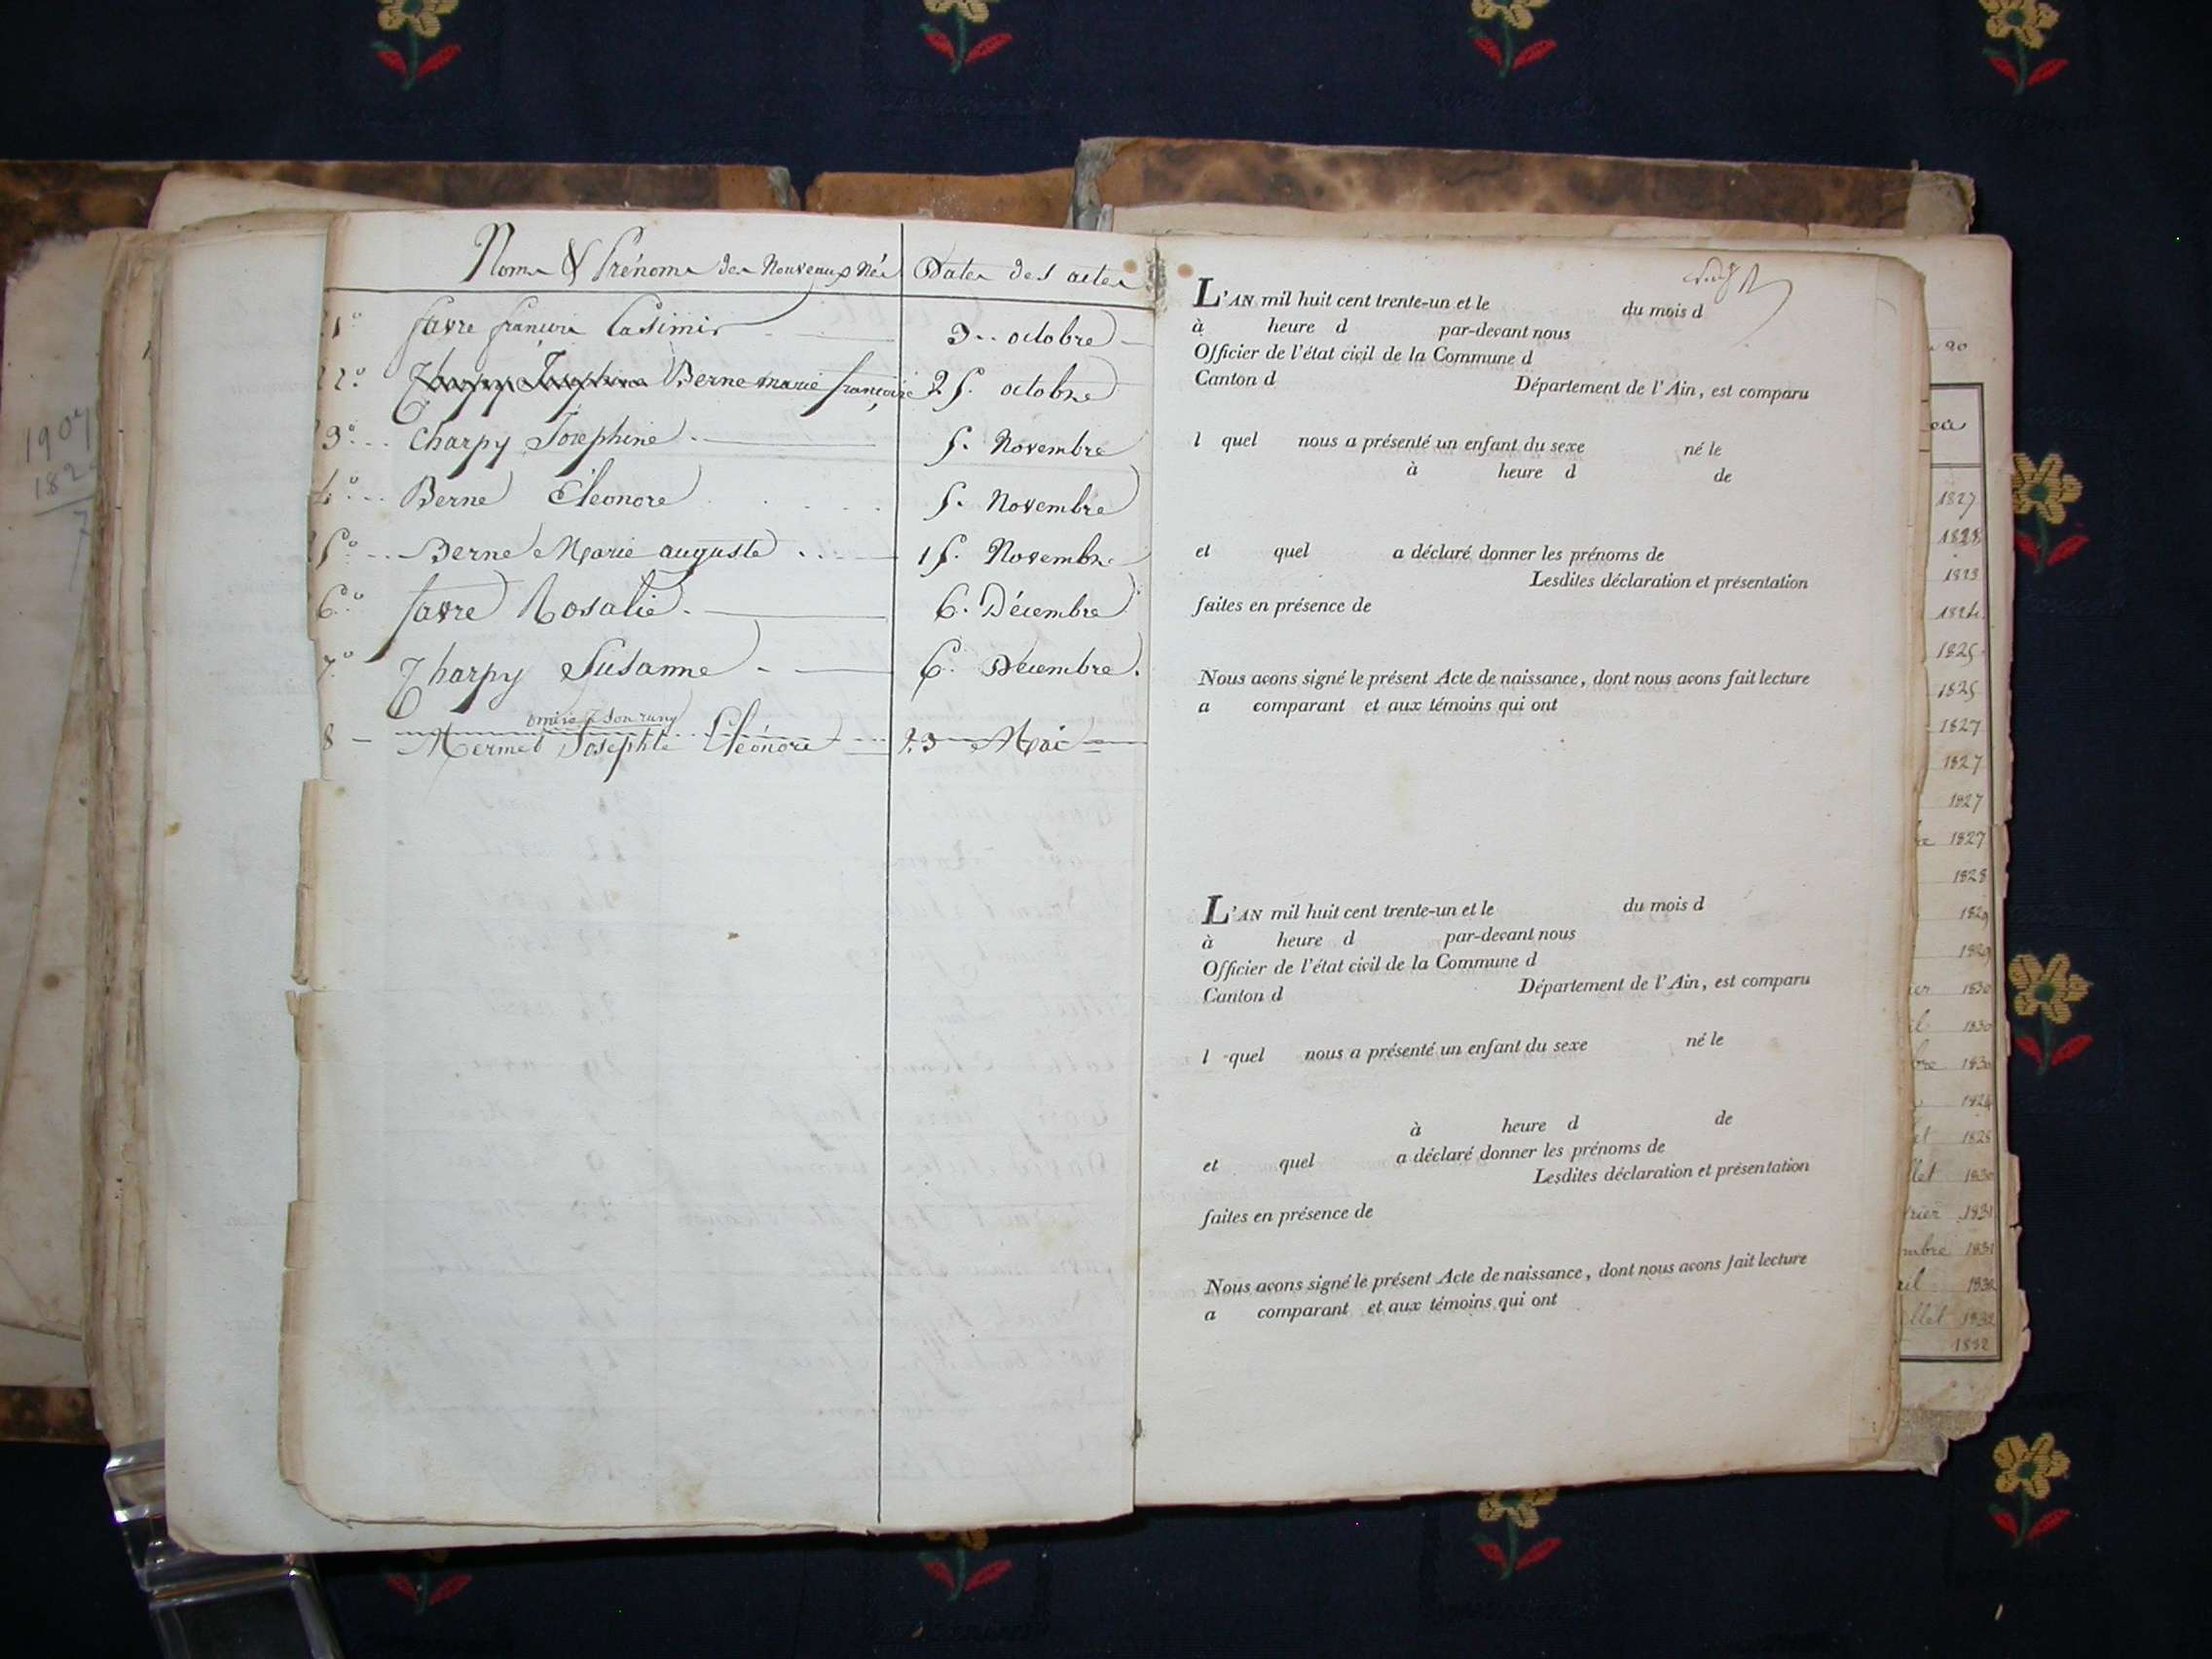 1907
182
7
Noms & Prénoms des Nouveaux Nés Dates des actes
21° favre françois Casimir 3 octobre
22° Charpy Josephine Berne marie françoise 25. octobre
23° Charpy Josephine 5. Novembre
4° Berne Eléonore 5. Novembre
25° Berne Marie auguste 15. Novembre
6° favre Rosalie 6. Décembre
7° Charpy Susanne 6. Décembre.
omise à son rang
8 Mermet Josephte Eléonore 23 Mai
L'AN mil huit cent trente-un et le du mois d
à heure d par-devant nous
Officier de l'état civil de la Commune d
Canton d Département de l'Ain, est comparu
l quel nous a présenté un enfant du sexe né le
à heure d de
et quel a déclaré donner les prénoms de
Lesdites déclaration et présentation
faites en présence de
Nous avons signé le présent Acte de naissance, dont nous avons fait lecture
a comparant et aux témoins qui ont
L'AN mil huit cent trente-un et le du mois d
à heure d par-devant nous
Officier de l'état civil de la Commune d
Canton d Département de l'Ain, est comparu
l quel nous a présenté un enfant du sexe né le
à heure d de
et quel a déclaré donner les prénoms de
Lesdites déclaration et présentation
faites en présence de
Nous avons signé le présent Acte de naissance, dont nous avons fait lecture
a comparant et aux témoins qui ont
20
1827
1828
1823
1824
1825
1825
1827
1827
1827
1827
1828
1829
1829
1830
1830
bre 1830
1824
et 1828
llet 1830
rier 1831
mbre 1831
il 1832
illet 1832
1832